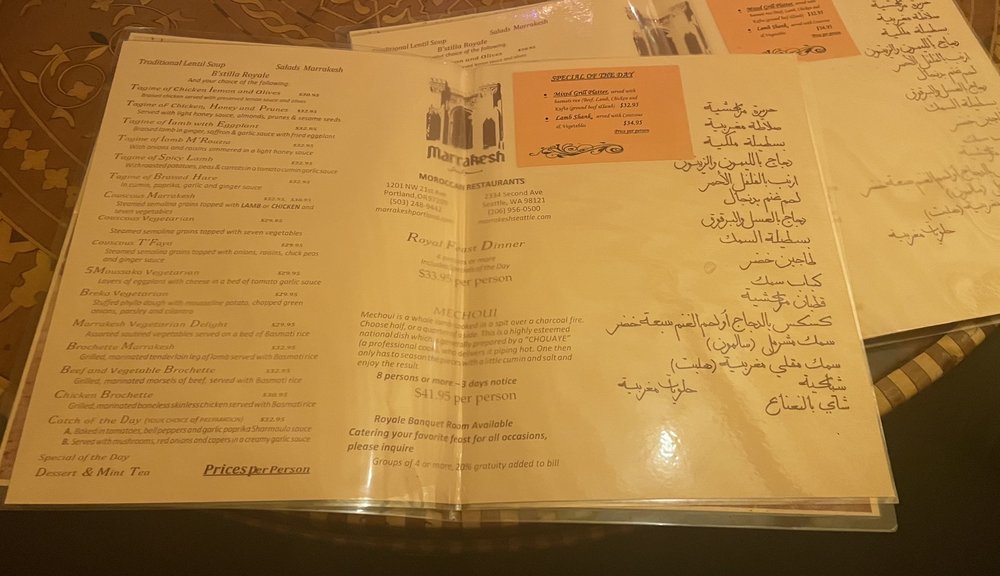 Traditional Lentil Soup
Salads Marrakesh
B'stilla Royale
And your choice of the following.
Tagine of Chicken lemon and Olives $30.95
Braised chicken served with preserved lemon sauce and olives
Tagine of Chicken, Honey and Prunes $32.95
Served with light honey sauce, almonds, prunes & sesame seeds
Tagine of Lamb with Eggplant $32.95
Braised lamb in ginger, saffron & garlic sauce with fried eggplant
Tagine of Lamb M'Rouzia $32.95
With onions and raisins simmered in a light honey sauce
Tagine of Spicy Lamb $32.95
With roasted potatoes, peas & carrots in a tomato cumin garlic sauce
Tagine of Braised Hare $32.95
In cumin, paprika, garlic and ginger sauce
Couscous Marrakesh
Steamed semolina grains topped with LAMB or CHICKEN and
seven vegetables
Couscous Vegetarian $29.95
Steamed semolina grains topped with seven vegetables
Couscous T'Faya $29.95
Steamed semolina grains topped with onions, raisins, chick peas
and ginger sauce
SMoussaka Vegetarian $29.95
Layers of eggplant with cheese in a bed of tomato garlic sauce
Breko Vegetarian $29.95
Stuffed phyllo dough with mousseline potato, chopped green
onions, parsley and cilantro
Marrakesh Vegetarian Delight $29.95
Assorted sautéed vegetables served on a bed of Basmati rice
Brochette Marrakesh $32.95
Grilled, marinated tenderloin leg of lamb served with Basmati rice
Beef and Vegetable Brochette $32.95
Grilled, marinated morsels of beef, served with Basmati rice
Chicken Brochette $30.95
Grilled, marinated boneless skinless chicken served with Basmati rice
Catch of the Day (YOUR CHOICE OF PREPARATION) $32.95
A. Baked in tomatoes, bell peppers and garlic paprika Sharmoula sauce
B. Served with mushrooms, red onions and capers in a creamy garlic sauce
Special of the Day
Dessert & Mint Tea
Prices per Person
Marrakesh
MOROCCAN RESTAURANTS
1201 NW 21st Ave
Portland, OR
(503) 248-9442
marrakeshportland.com
2334 Second Ave
Seattle, WA 98121
(206) 956-0500
marrakeshseattle.com
Royal Feast Dinner
4 persons or more
Includes Specials of the Day
$33.95 per person
MECHOUI
Mechoui is a whole lamb cooked in a spit over a charcoal fire.
Choose half, or a quarter This is a highly esteemed
national dish which prepared by a "CHOUAYE"
(a professional cook) who delivers it piping hot. One then
only has to season the pieces with a little cumin and salt and
enjoy the result.
8 persons or more – 3 days notice
$41.95 per person
Royale Banquet Room Available
Catering your favorite feast for all occasions,
please inquire
Groups of 4 or more, 20% gratuity added to bill
SPECIAL OF THE DAY
• Mixed Grill Platter, served with
basmati rice (Beef, Lamb, Chicken and
Kefta (ground beef &lamb) $32.95
• Lamb Shank, served with Couscous
& Vegetables $34.95
Price per person
حريرة مراكشية
سلاطة مغربية
بسطيلة ملكية
دجاج بالليمون والزيتون
ارنب بالفلفل الأحمر
لحم غنم بدنجال
دجاج بالعسل والبرقوق
بسطيلة السمك
طاجين خضر
كباب سمك
قطبان مراكشية
كسكس بالدجاج أو لحم الغنم سبعة خضر
سمك شرمول (سالمون)
سمك مقلي مغربية (هليبت)
شباكية حلويات مغربية
شاي بالنعناع
Traditional Lentil Soup
Salads Marrakesh
B'stilla Royale
Mixed Grill Platter, served with
basmati rice (Beef, Lamb, Chicken and
Kefta (ground beef &lamb) $32.95
• Lamb Shank, served with Couscous
& Vegetables $34.95
Price per person